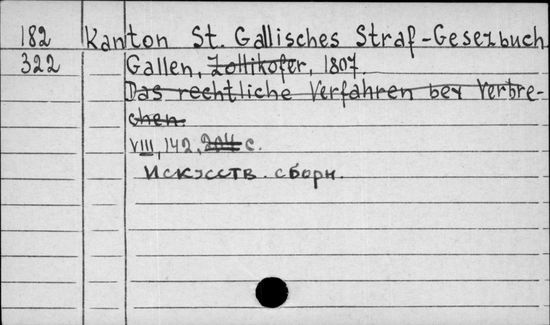 182 Kanton St. Gallisches Straf-Gesezbuch
322 Gallen, Zollikofer, 1807.
Das rechtliche Verfahren bey Verbre-
chen.
VIII, 142, 204 с.
Искусств. сборн.